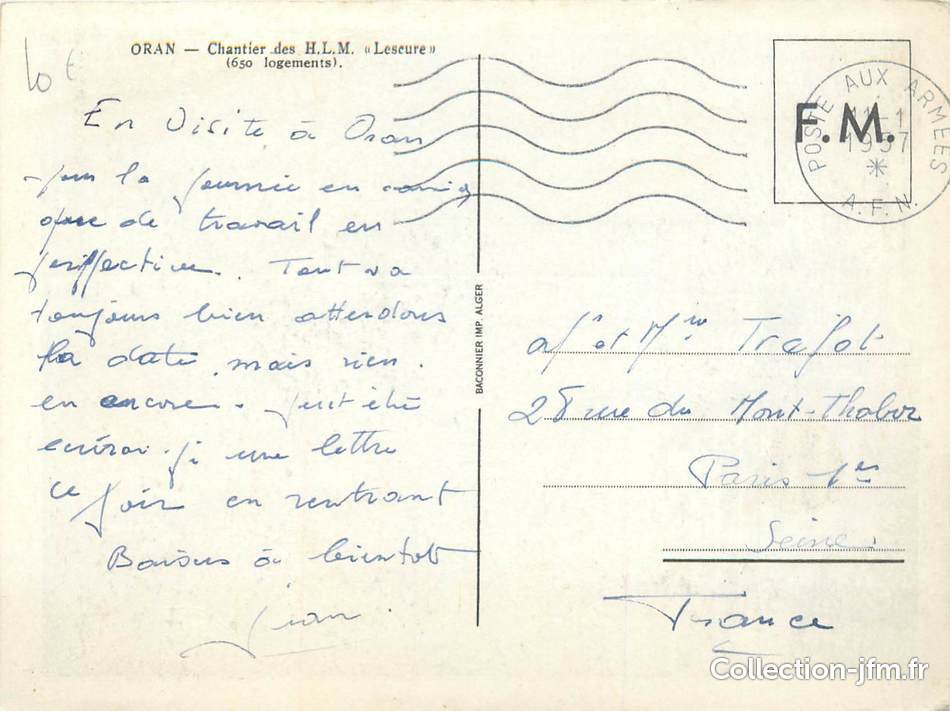 ORAN — Chantier des H.L.M. "Lescure"
(650 logements).
10 €
En Visite à Oran
pour la journée en
que de travail en
perspective. Tout va
toujours bien attendons
la date, mais rien
en encore. Peut être
écrirai-je une lettre
ce soir en rentrant
Baisers à bientot
Jean
BACONNIER IMP. ALGER
F.M.
POSTE AUX ARMÉES
11-1
1957
A.F.N.
Mr et Mme Trafot
28 rue du Mont-Thabor
Paris 1er
Seine
France
Collection-jfm.fr